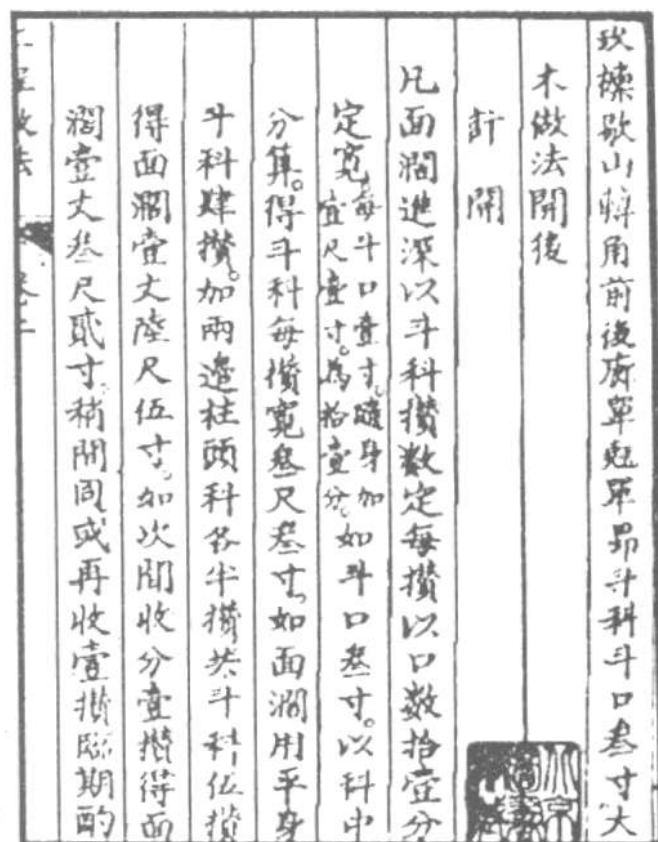 玖檁歇山轉角前後廊單翹單昻斗科斗口叁寸大
木做法開後
計開
凡面濶進深以斗科攢數定每攢以口數拾壹分
定寬每斗口壹寸隨身加壹尺壹寸為拾壹分如斗口叁寸以科中
分算得斗科每攢寬叁尺叁寸如面濶用平身
斗科肆攢加兩邊柱頭科各半攢共斗科伍攢
得面濶壹丈陸尺伍寸如次間收分壹攢得面
濶壹丈叁尺貳寸稍間同或再收壹攢臨期酌